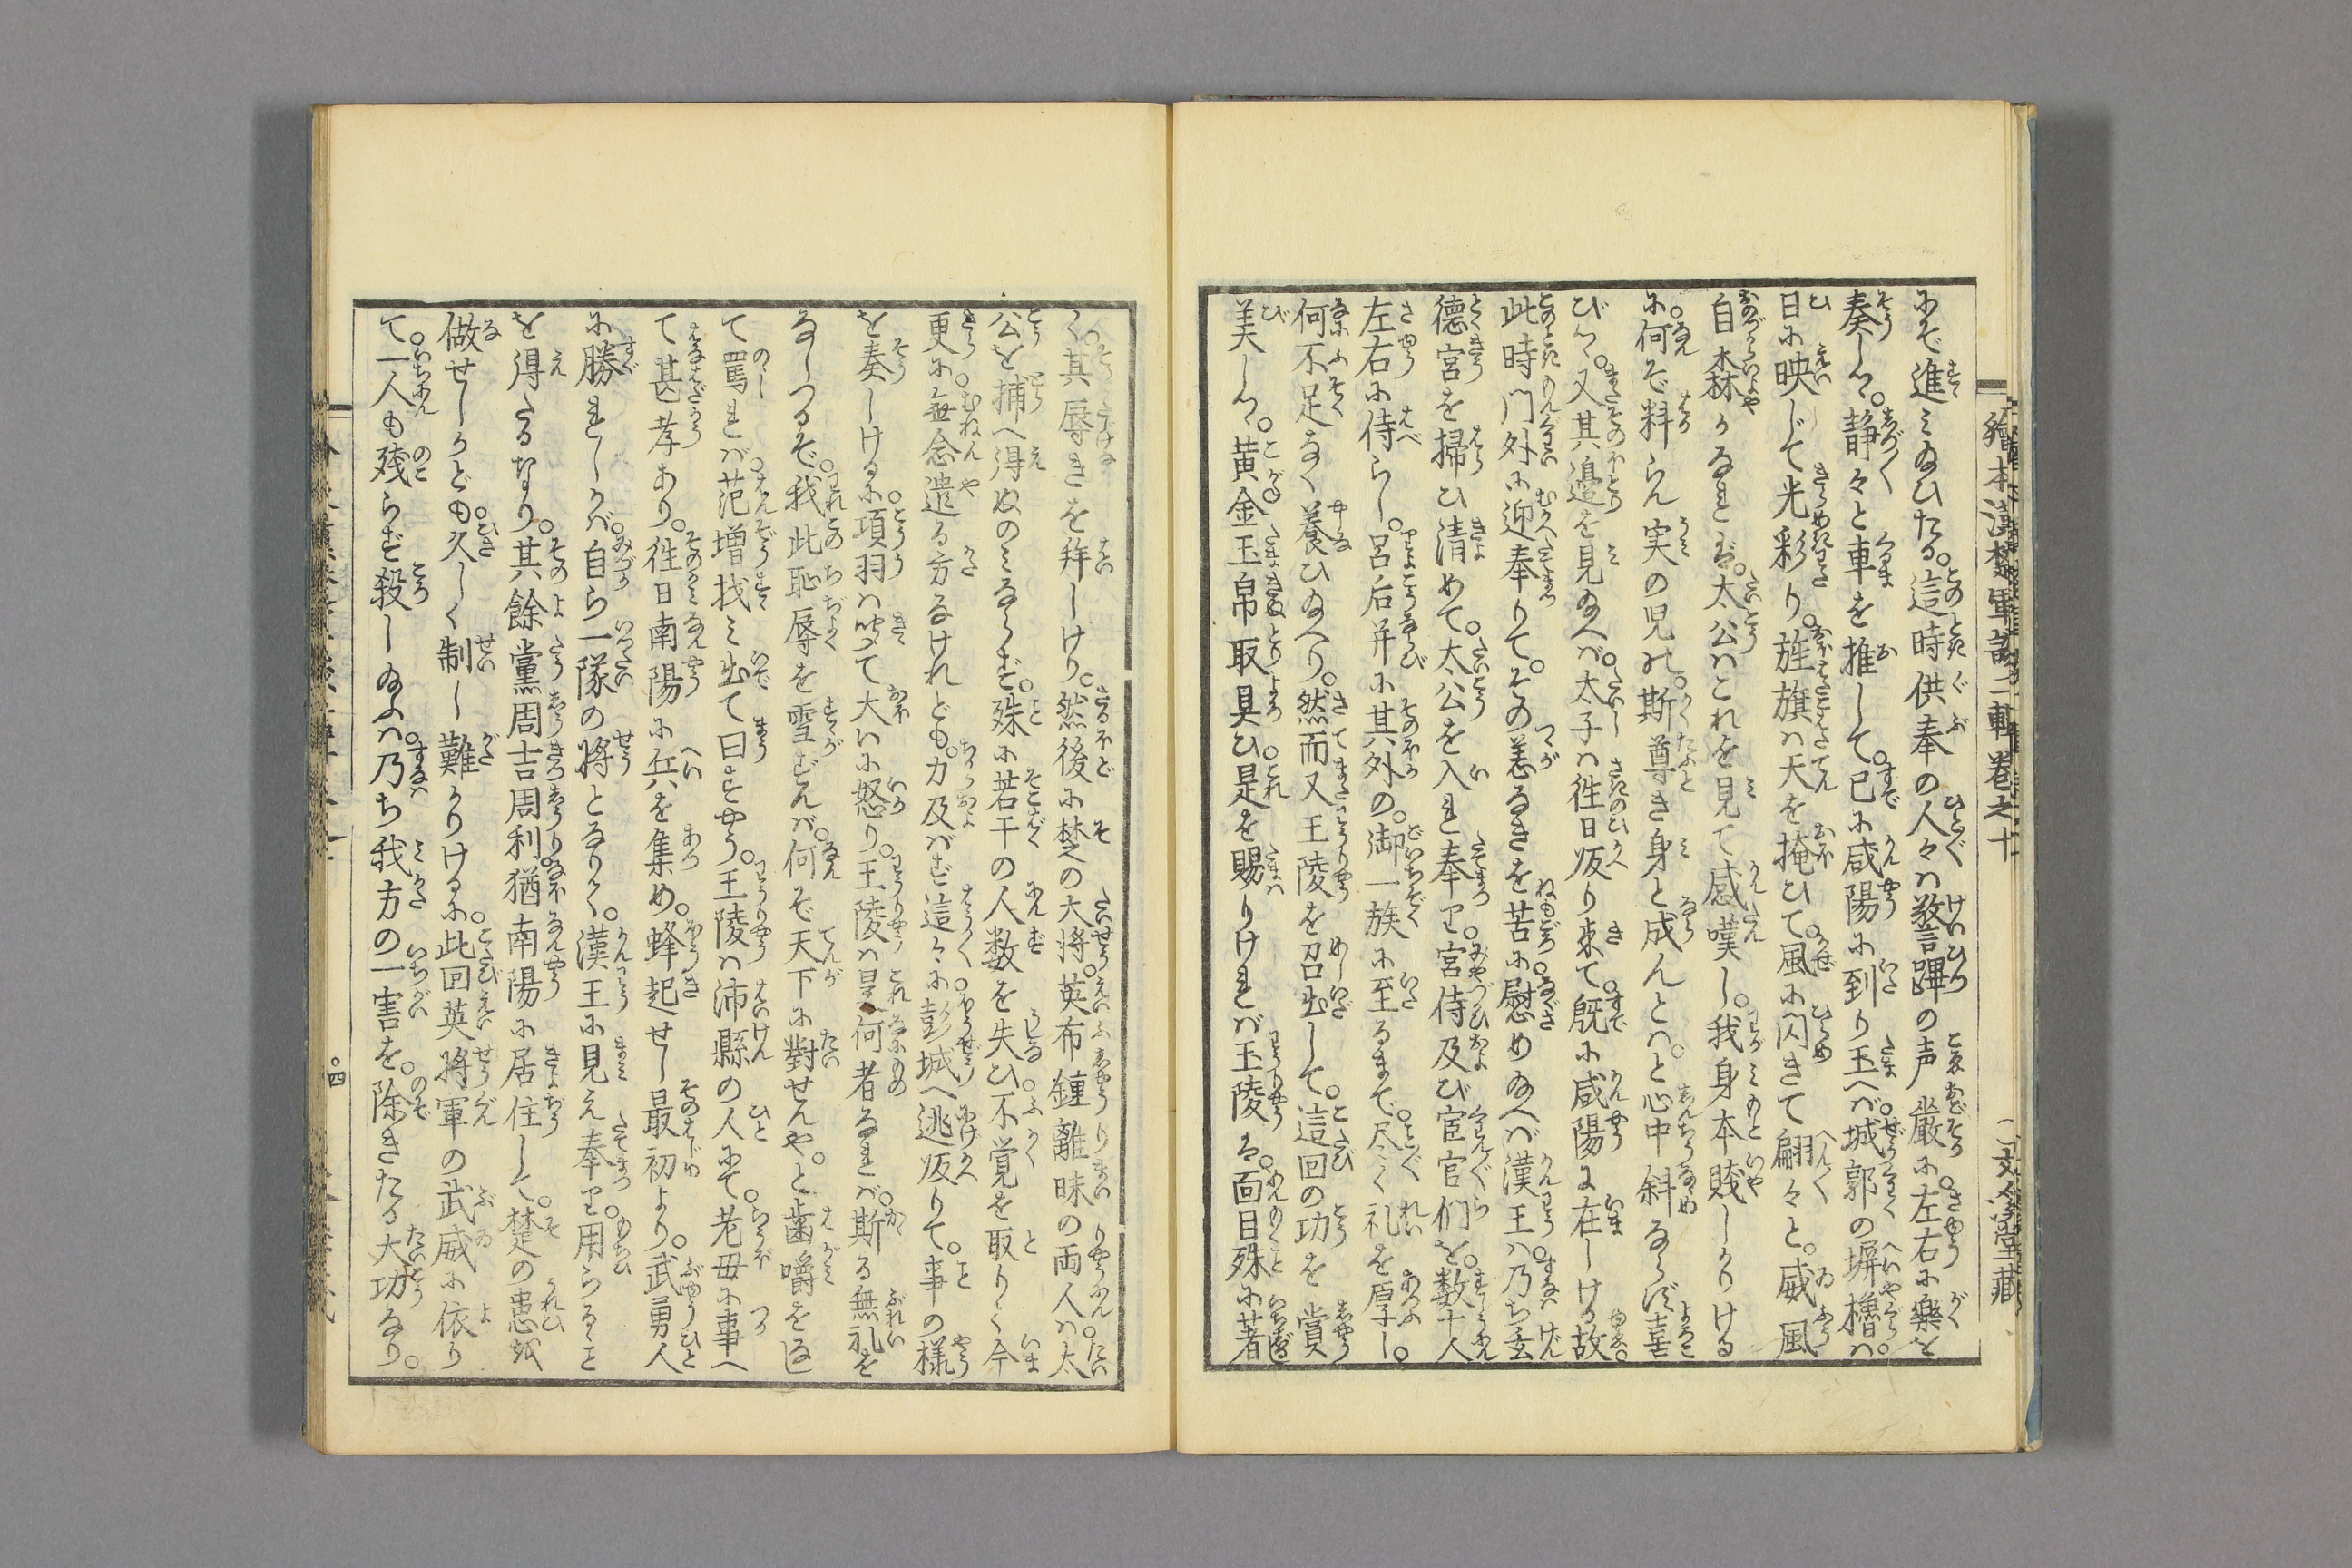 繪本漢楚軍談二輯巻之十
文金堂藏
にぞ進み給ひたる。這時供奉の人々は警蹕の声厳に。左右に樂を
奏しつゝ。静々と車を推して。已に咸陽に到り玉へば。城郭の塀櫓は。
日に映じて光彩り。旌旗は天を掩ひて。風に閃きて翩々と。威風
自森かなれば。太公はこれを見て感嘆し。我身本賎しかりける
に。何ぞ料らん実の児の。斯尊き身と成んとは。と心中斜ならず喜
びつゝ。又其邉を見給へば。太子は徃日皈り来て。既に咸陽に在しける故。
此時門外に迎奉りて。その恙なきを苦に慰め給へば漢王は。乃ち玄
德宮を掃ひ清めて。太公を入れ奉り。宮侍及び宦官們を。数十人
左右に侍らし。呂后并に其外の。御一族に至るまで。尽く礼を厚し。
何不足なく養ひ給へり。然而又王陵を召出して。這回の功を賞
美しつゝ。黄金玉帛取具ひ是を賜りければ王陵は。面目殊に著
く。其辱きを拝しけり。然後に楚の大将。英布鍾離昧の両人は。太
公を捕へ得ぬのみならず。殊に若干の人数を失ひ。不覚を取りく今
更に。無念遣る方なけれども。力及ばず這々に。彭城へ逃皈りて。事の様
を奏しけるに。項羽は聞て大いに怒り。王陵は是何者なれば。斯る無礼を
なしつるぞ。我此恥辱を雪ずんば。何ぞ天下に對せんや。と歯嚼をなし
て罵れば。范増找み出て曰すやう。王陵は沛縣の人にて。老母に事へ
て甚孝あり。徃日南陽に兵を集め。蜂起せし最初より。武勇人
に勝れしかば。自ら一隊の将となりく。漢王に見え奉り。用らるゝこと
を得たるなり。其餘黨周吉周利。猶南陽に居住して。楚の患を
做せしかども。久しく制し難かりけるに。此回英将軍の武威に依り
て。一人も残らず殺し給ふは。乃ち我方の一害を。除きたる大功なり。
四